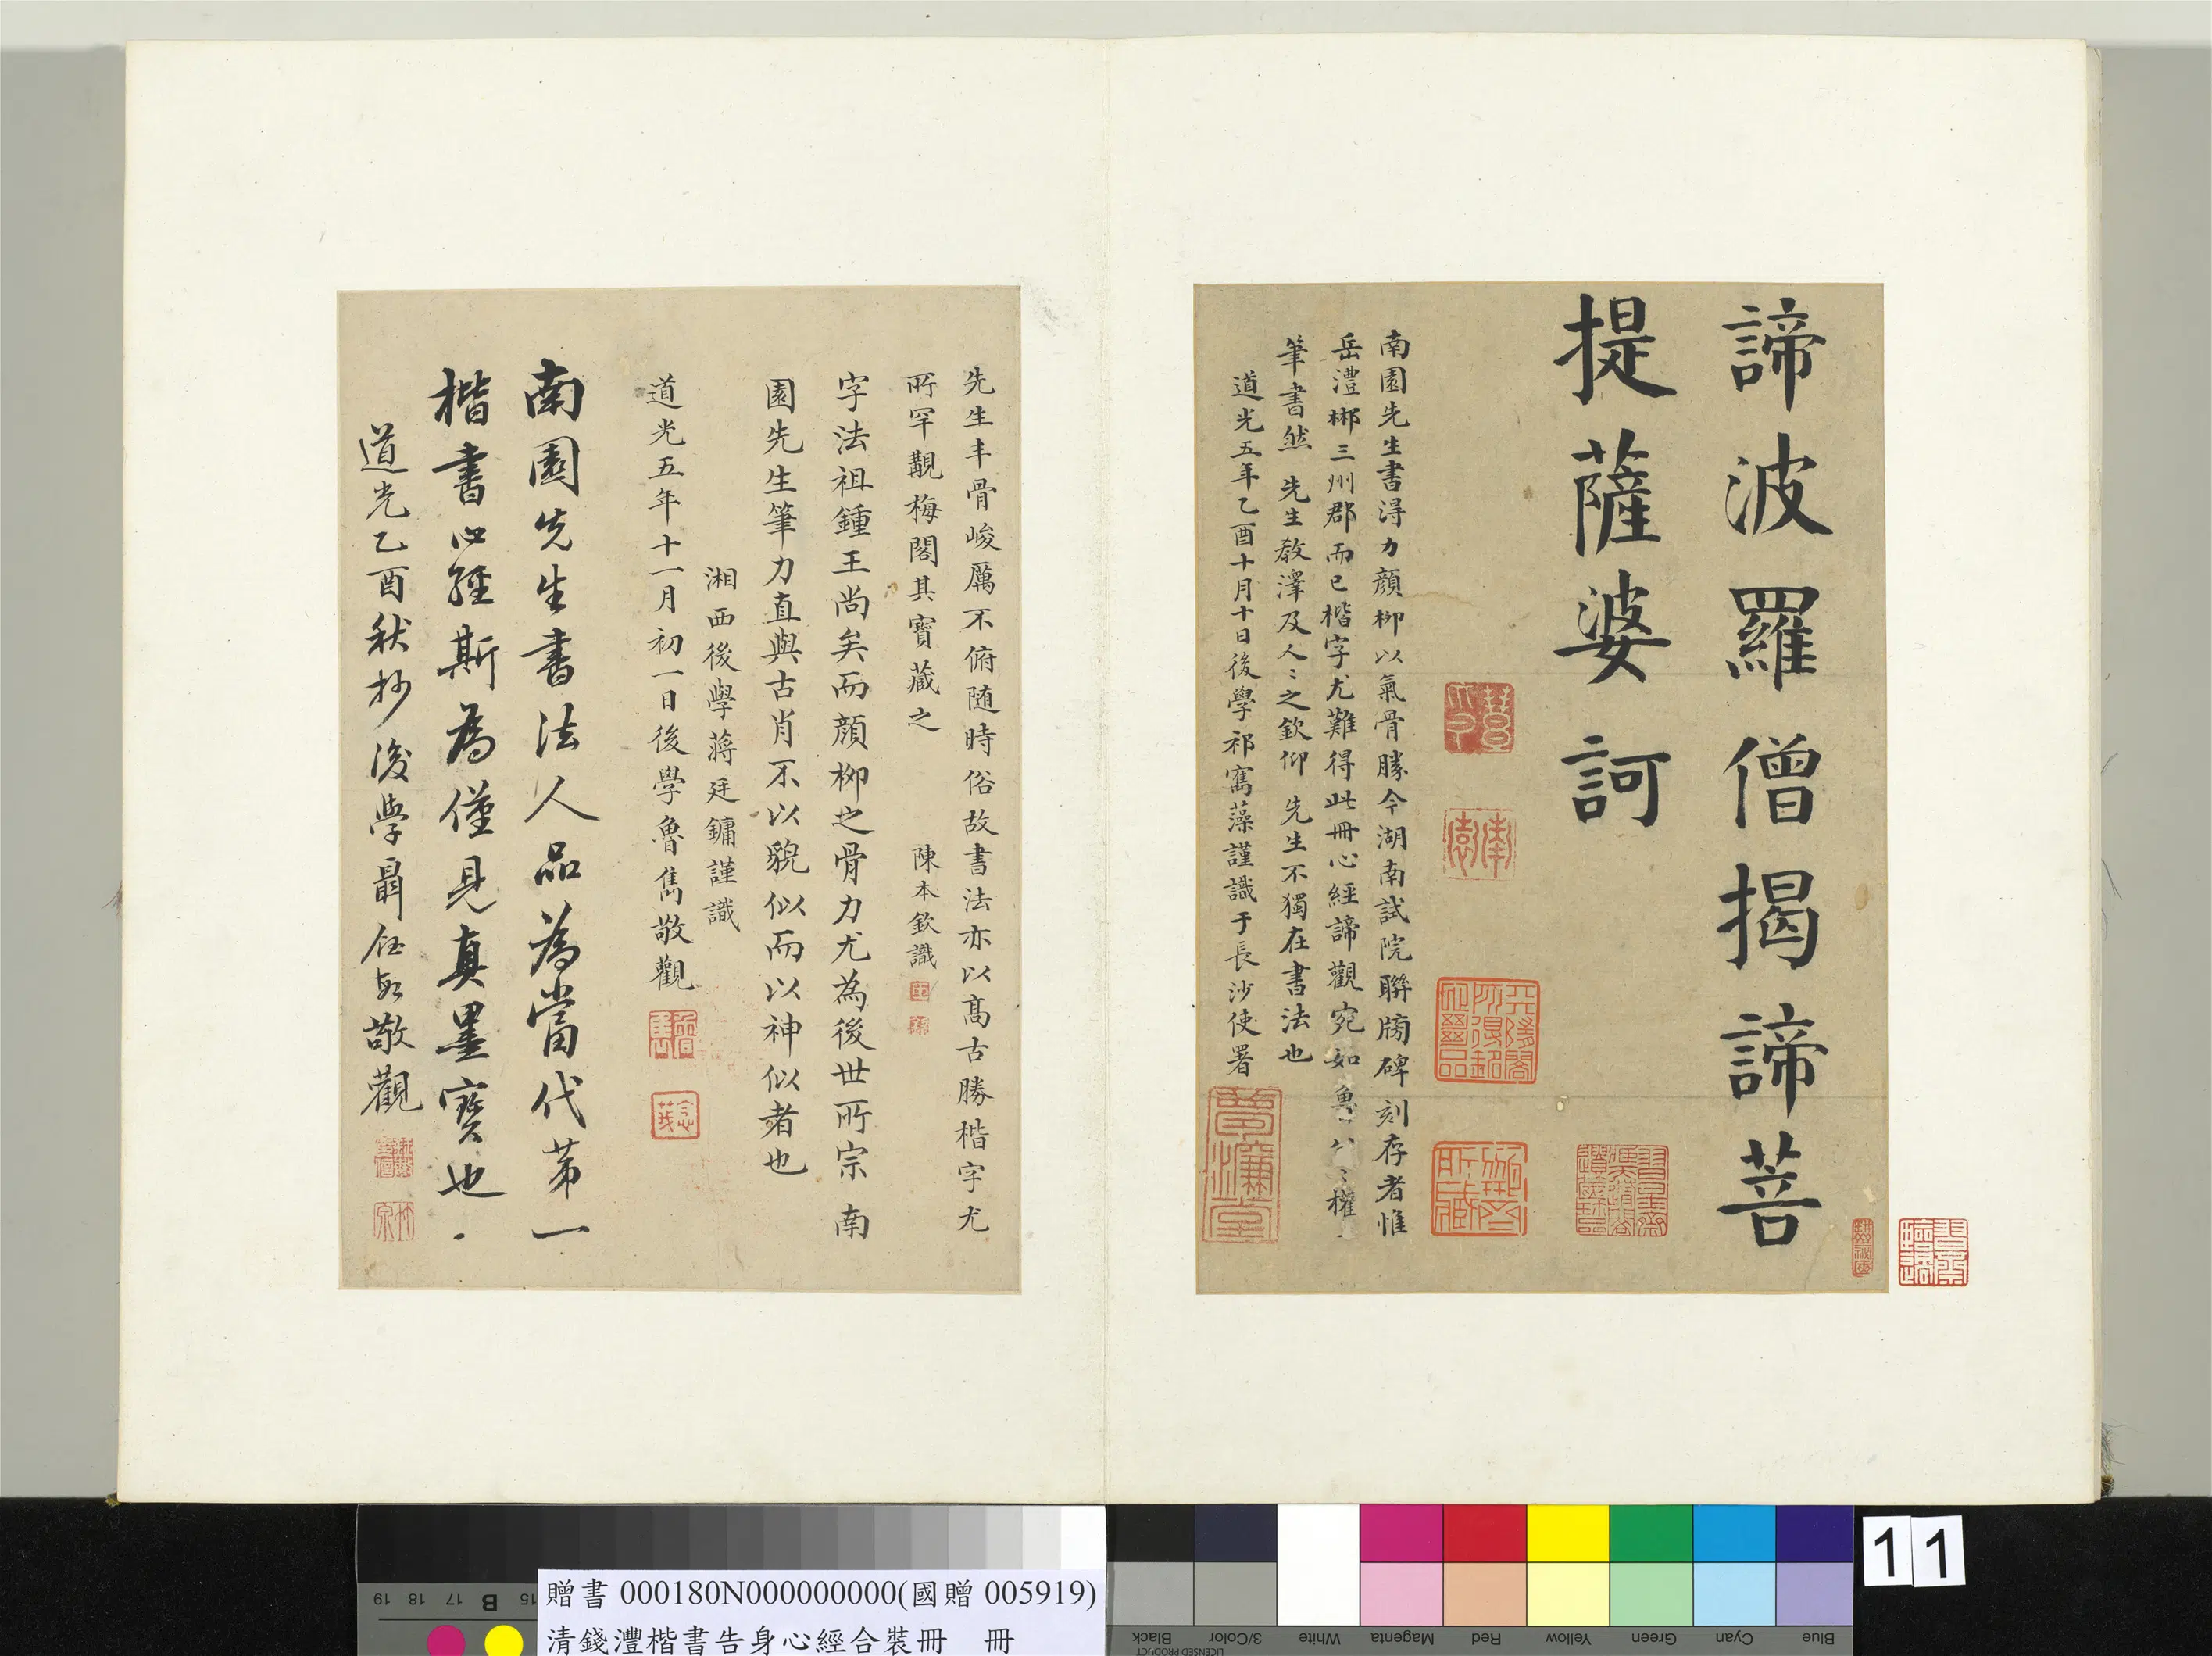 諦波羅僧揭諦菩
提薩婆訶
南園先生書淂力顏柳以氣骨勝今湖南試院聯牓碑刻存者惟
岳澧郴三州郡而已楷字尤難得此冊心經諦觀宛如魯公權
筆書然 先生教澤及人〻之欽仰 先生不獨在書法也
道光五年乙酉十月十日後學祁寯藻謹識于長沙使署
先生丰骨峻厲不俯随時俗故書法亦以髙古勝楷字尤
所罕覯梅閣其寳藏之
陳本欽識
字法祖鍾王尚矣而顏柳之骨力尤為後世所宗 南
園先生筆力直與古肖不以貌似而以神似者也
湘西後學蔣廷鏞謹識
道光五年十一月初一日後學魯雋敬觀
南園先生書法人品為當代苐一
楷書心經斯為僅見真墨寳也
道光乙酉秋抄後學聶敬觀
11
贈書 000180N000000000(國贈 005919)
清錢灃楷書告身心經合裝冊 冊
19 18 17 B 15
Black
3/Color
White
Magenta
Red
Yellow
Green
Cyan
Blue
LICENSED PRODUCT